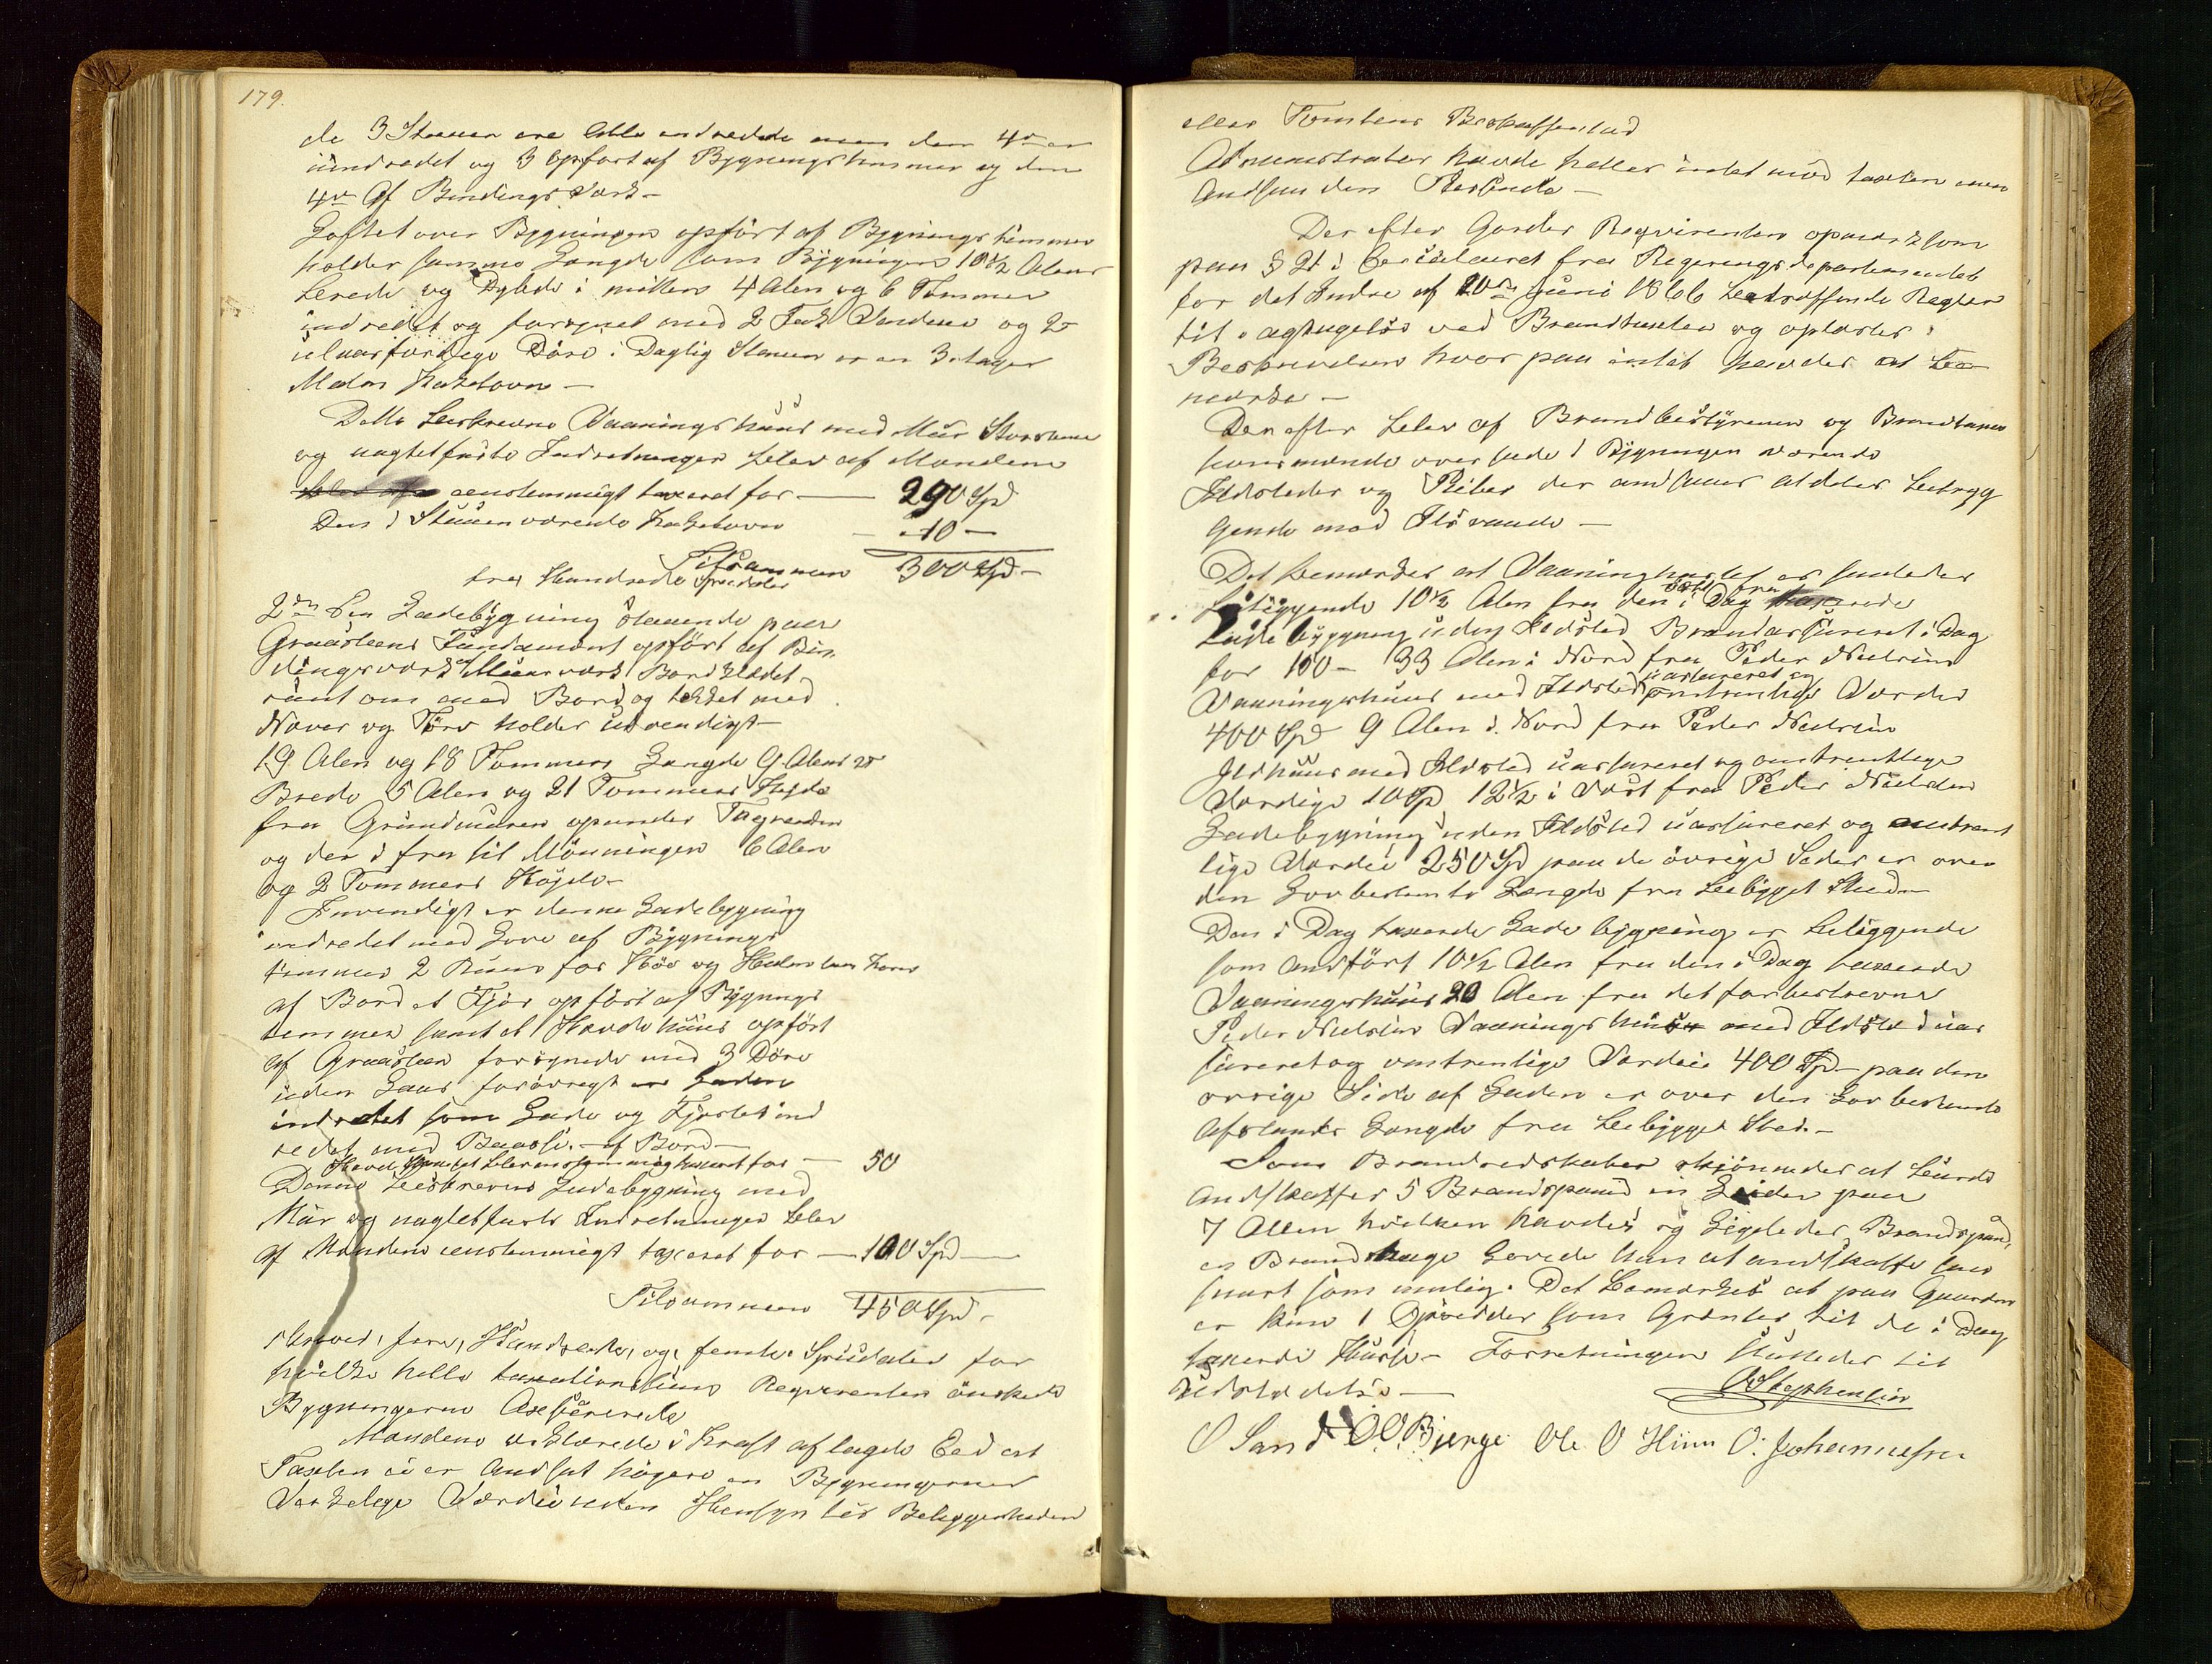 179.
de 3 Stuer ere alle indredede men den 4de er
uindredet og 3 opført af Bygningstømmer og den
4de af Bindingsværk –
Loftet over Bygningen opført af Bygningstømmer
holder samme Længde som Bygningen 10½ Alens
Brede og Dybde i midten 4 Alen og 6 Tommer
indredet og forsynet med 2 Fack Vinduer og 2
Døre i Daglig Stuen er en 3 etages
Kakelovn –
Dette beskrevne Vaaningshuus med Muur Skorsteen
og nagelfaste Indretninger blev af Mændene
eenstemmigt taxeret for — 290 Spd
Den i Stuen værende Kakelovn – 10 –
Tilsammen 300 Spd –
tre Hundrede Speciedaler
2den En Ladebygning staaende paa
Graasteens Fundament opført af Bin-
dingsværk Bordklædt
rundt om med Bord og tækket med
Næver og Törv holder udvendigt –
19 Alen og 18 Tommers Længde 9 Alens
Brede 5 Alen og 21 Tommers Højde
fra Grundmuren opunder Tagranden
og der i fra til Mønningen 6 Alen
og 2 Tommers Højde –
Indvendigt er denne Ladebygning
indredet med Love af Bygnings
tømmer 2 Rum for Höe og Halm
af Bord et Fjös opført af Bygnings
tømmer samt et huus opført
af Graasteen forsynede med 3 Döre
uden Laas forövrigt
indredet som Lade og Fjöset ind
redet med Baase af Bord –
blev eenstemmig taxeret for — 50
Denne beskrevne Ladebygning med
Mur og nagletfaste Indretninger blev
af Mændene eenstemmigt taxeret for — 100 Spd —
Tilsammen 450 Spd –
skriver, fire, Hundrede, og, femti Speciedaler for
hvilke hele taxationssum Reqvirenten önskede
Bygningerne Assurerede
Mændene erklærede i Kraft aflagde Eed at
Taxten ei er Andsat höjere en Bygningernes
Værdie uden Hensyn til Beliggenheden
eller Tomtens Beskaffenhed
Administrator havde heller intet mod taxten men
Andsaa den Passende –
Der efter Gjordes Reqvirenten opmærksom
paa § 21 i Circulairet fra Regjeringsdepartementet
for det Indre af 20de Juni 1866 betræffende Regler
til iagttagelse ved Brandtaxter og oplæstes
Beskrivelsen hvor paa intet havdes at be-
mærke –
Der efter blev af Brandbestyreren og Brandtaxa
tionsmænde over sede i Bygningen værende
Ildsteder og Piber der andsaaes aldeles betryg
gende mod Ildsvaade –
Det bemærkes at Vaaninghuset er saaledes
beliggende 10½ Alen fra den i Dag taxerede
Ladebygning uden Ildsted Brandassureret i Dag
for 100 – 33 Alen i Nord fra Peder Nielsens
Vaaningshuus med Ildsted uassureret og omtrentlige Værdie
400 Spd 9 Alen i Nord fra Peder Nielsens
Ildhuus med Ildsted uassureret og omtrentlige
Værdige 10 Spd 12½ i Vest fra Peder Nielsens
Ladebygning uden Ildsted uassureret og omtrent
lige Værdie 250 Spd paa de övrige Sider er over
den Lovbestemte Længde fra bebygget Sted –
Den i Dag taxerede Lade bygning er beliggende
som Andført 10½ Alen fra den i Dag taxerede
Vaaningshuus 20 Alen fra det forbeskrevne
Peder Nielsens Vaaningshuus med Ildsted uas
sureret og omtrentlige Værdie 400 Spd – paa den
övrige Side af Laden er over den Lovbestemte
Afstands Længde fra bebygget Sted. –
Som Brandredskaber skjönnedes at burde
Andskaffes 5 Brandspand en Leider paa
7 Allen hvilken havdes og Ligeledes Brandspand,
en Brandhage Lovede han at andskaffe saa
snart som mulig. Det bemærkes at paa Gaarden
er kun 1 Opsidder som Grændser til de i Dag
taxerede Huse – Forretningen sluttedes til
Udstædelse —
O Stephensen
O Sand O O. Bjerge Ole O Hinn O: Johannesen